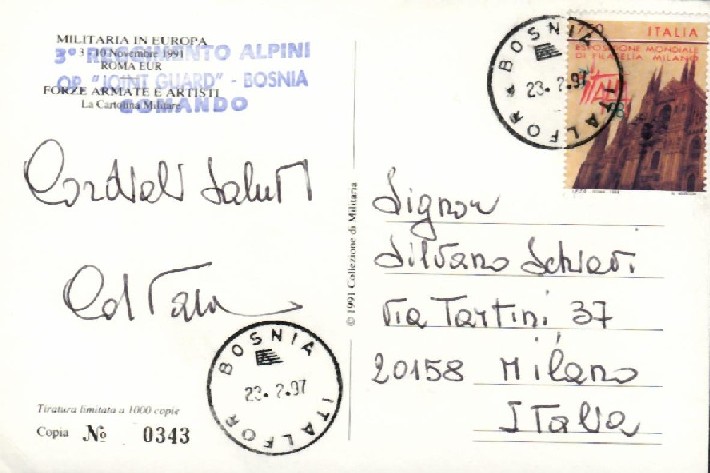 MILITARIA IN EUROPA
3-10 Novembre 1991
ROMA EUR
FORZE ARMATE E ARTISTI
La Cartolina Militare
3° REGGIMENTO ALPINI
OP. "JOINT GUARD" - BOSNIA
COMANDO
Cordiali Saluti
Tiratura limitata a 1000 copie
Copia № 0343
BOSNIA
23.2.97
ITALFOR
© 1991 Collezione di Militaria
BOSNIA
23.2.97
ITALFOR
ITALIA
ESPOSIZIONE MONDIALE
DI FILATELIA MILANO
Signor
Silvano Schiavi
Via Tartini 37
20158 Milano
Italia